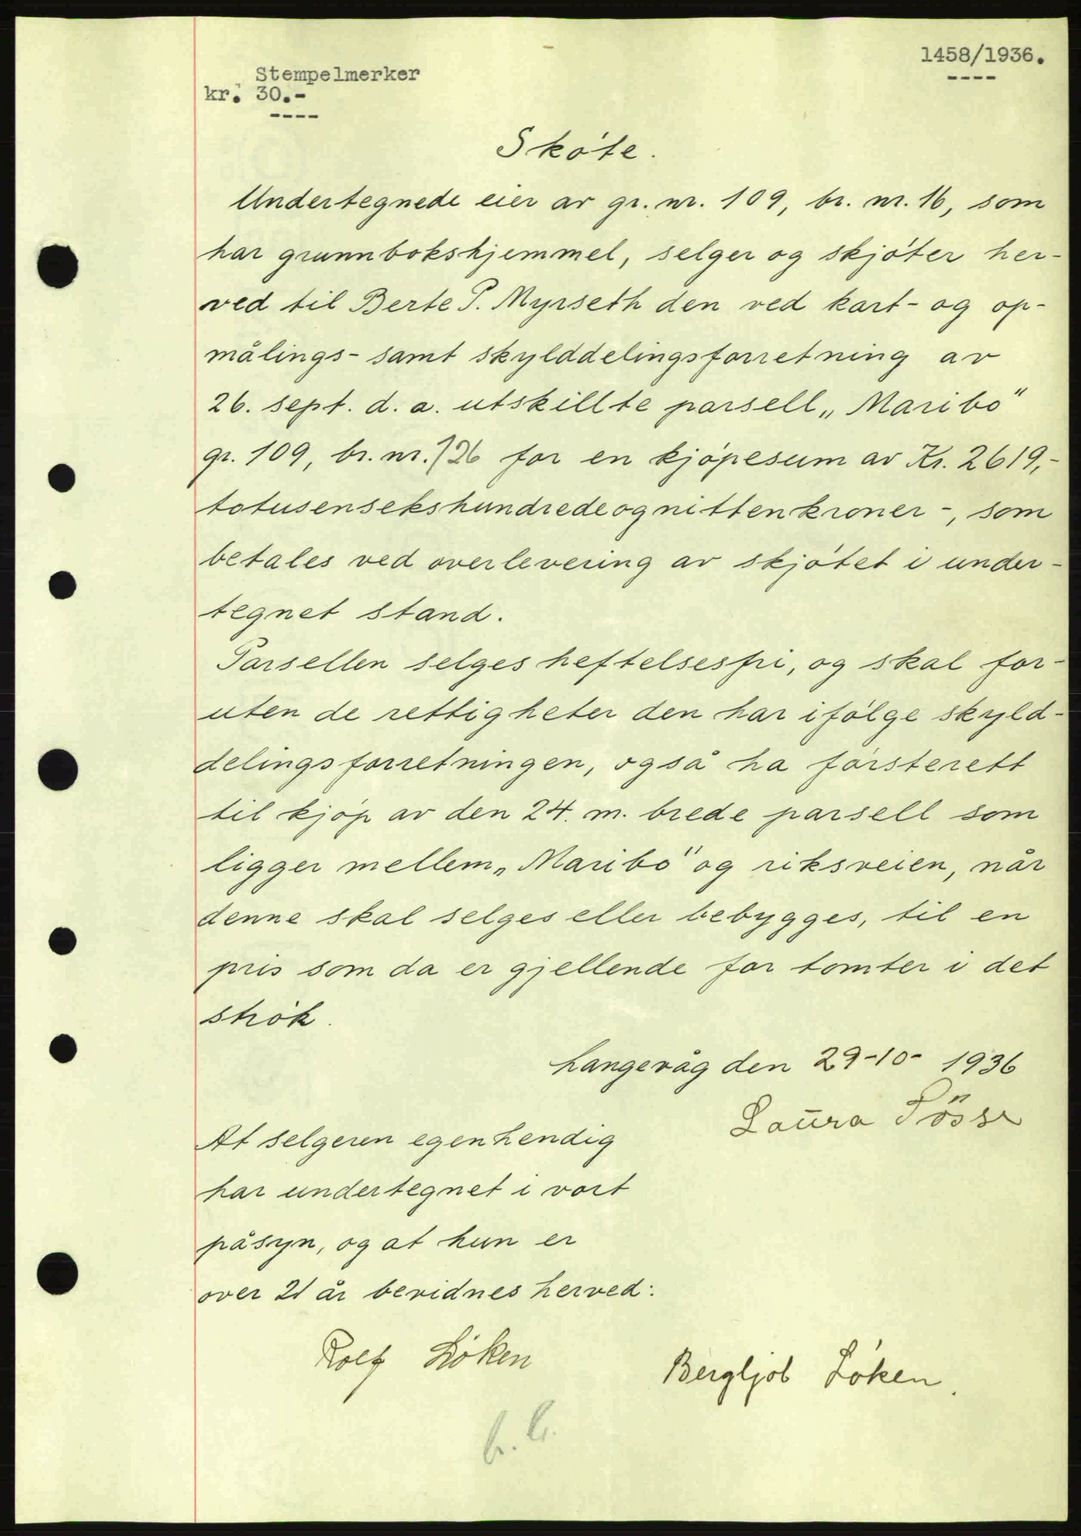 1458/1936.
----
Stempelmerker
kr. 30.-
----
Skóte.
Undertegnede eier av gr. nr. 109, br. nr. 16, som
har grunnbokshjemmel, selger og skjóter her-
ved til Berte P. Myrseth den ved kart- og op-
målings- samt skylddelingsforretning av
26. sept. d. a. utskillte parsell „Maribo"
gr. 109, br. nr. 126 for en kjópesum av Kr. 2619,-
totusensekshundredeognittenkroner -, som
betales ved overlevering av skjótet i under-
tegnet stand.
Parsellen selges heftelsesfri, og skal for-
uten de rettigheter den har ifólge skyld-
delingsforretningen, også ha fórsterett
til kjóp av den 24. m. brede parsell som
ligger mellem „Maribo" og riksveien, når
denne skal selges eller bebygges, til en
pris som da er gjellende for tomter i det
strók.
Langevåg den 29-10- 1936
Laura Pösse
At selgeren egenhendig
har undertegnet i vort
påsyn, og at hun er
over 21 år bevidnes herved:
Rolf Lóken
Bergljot Lóken.